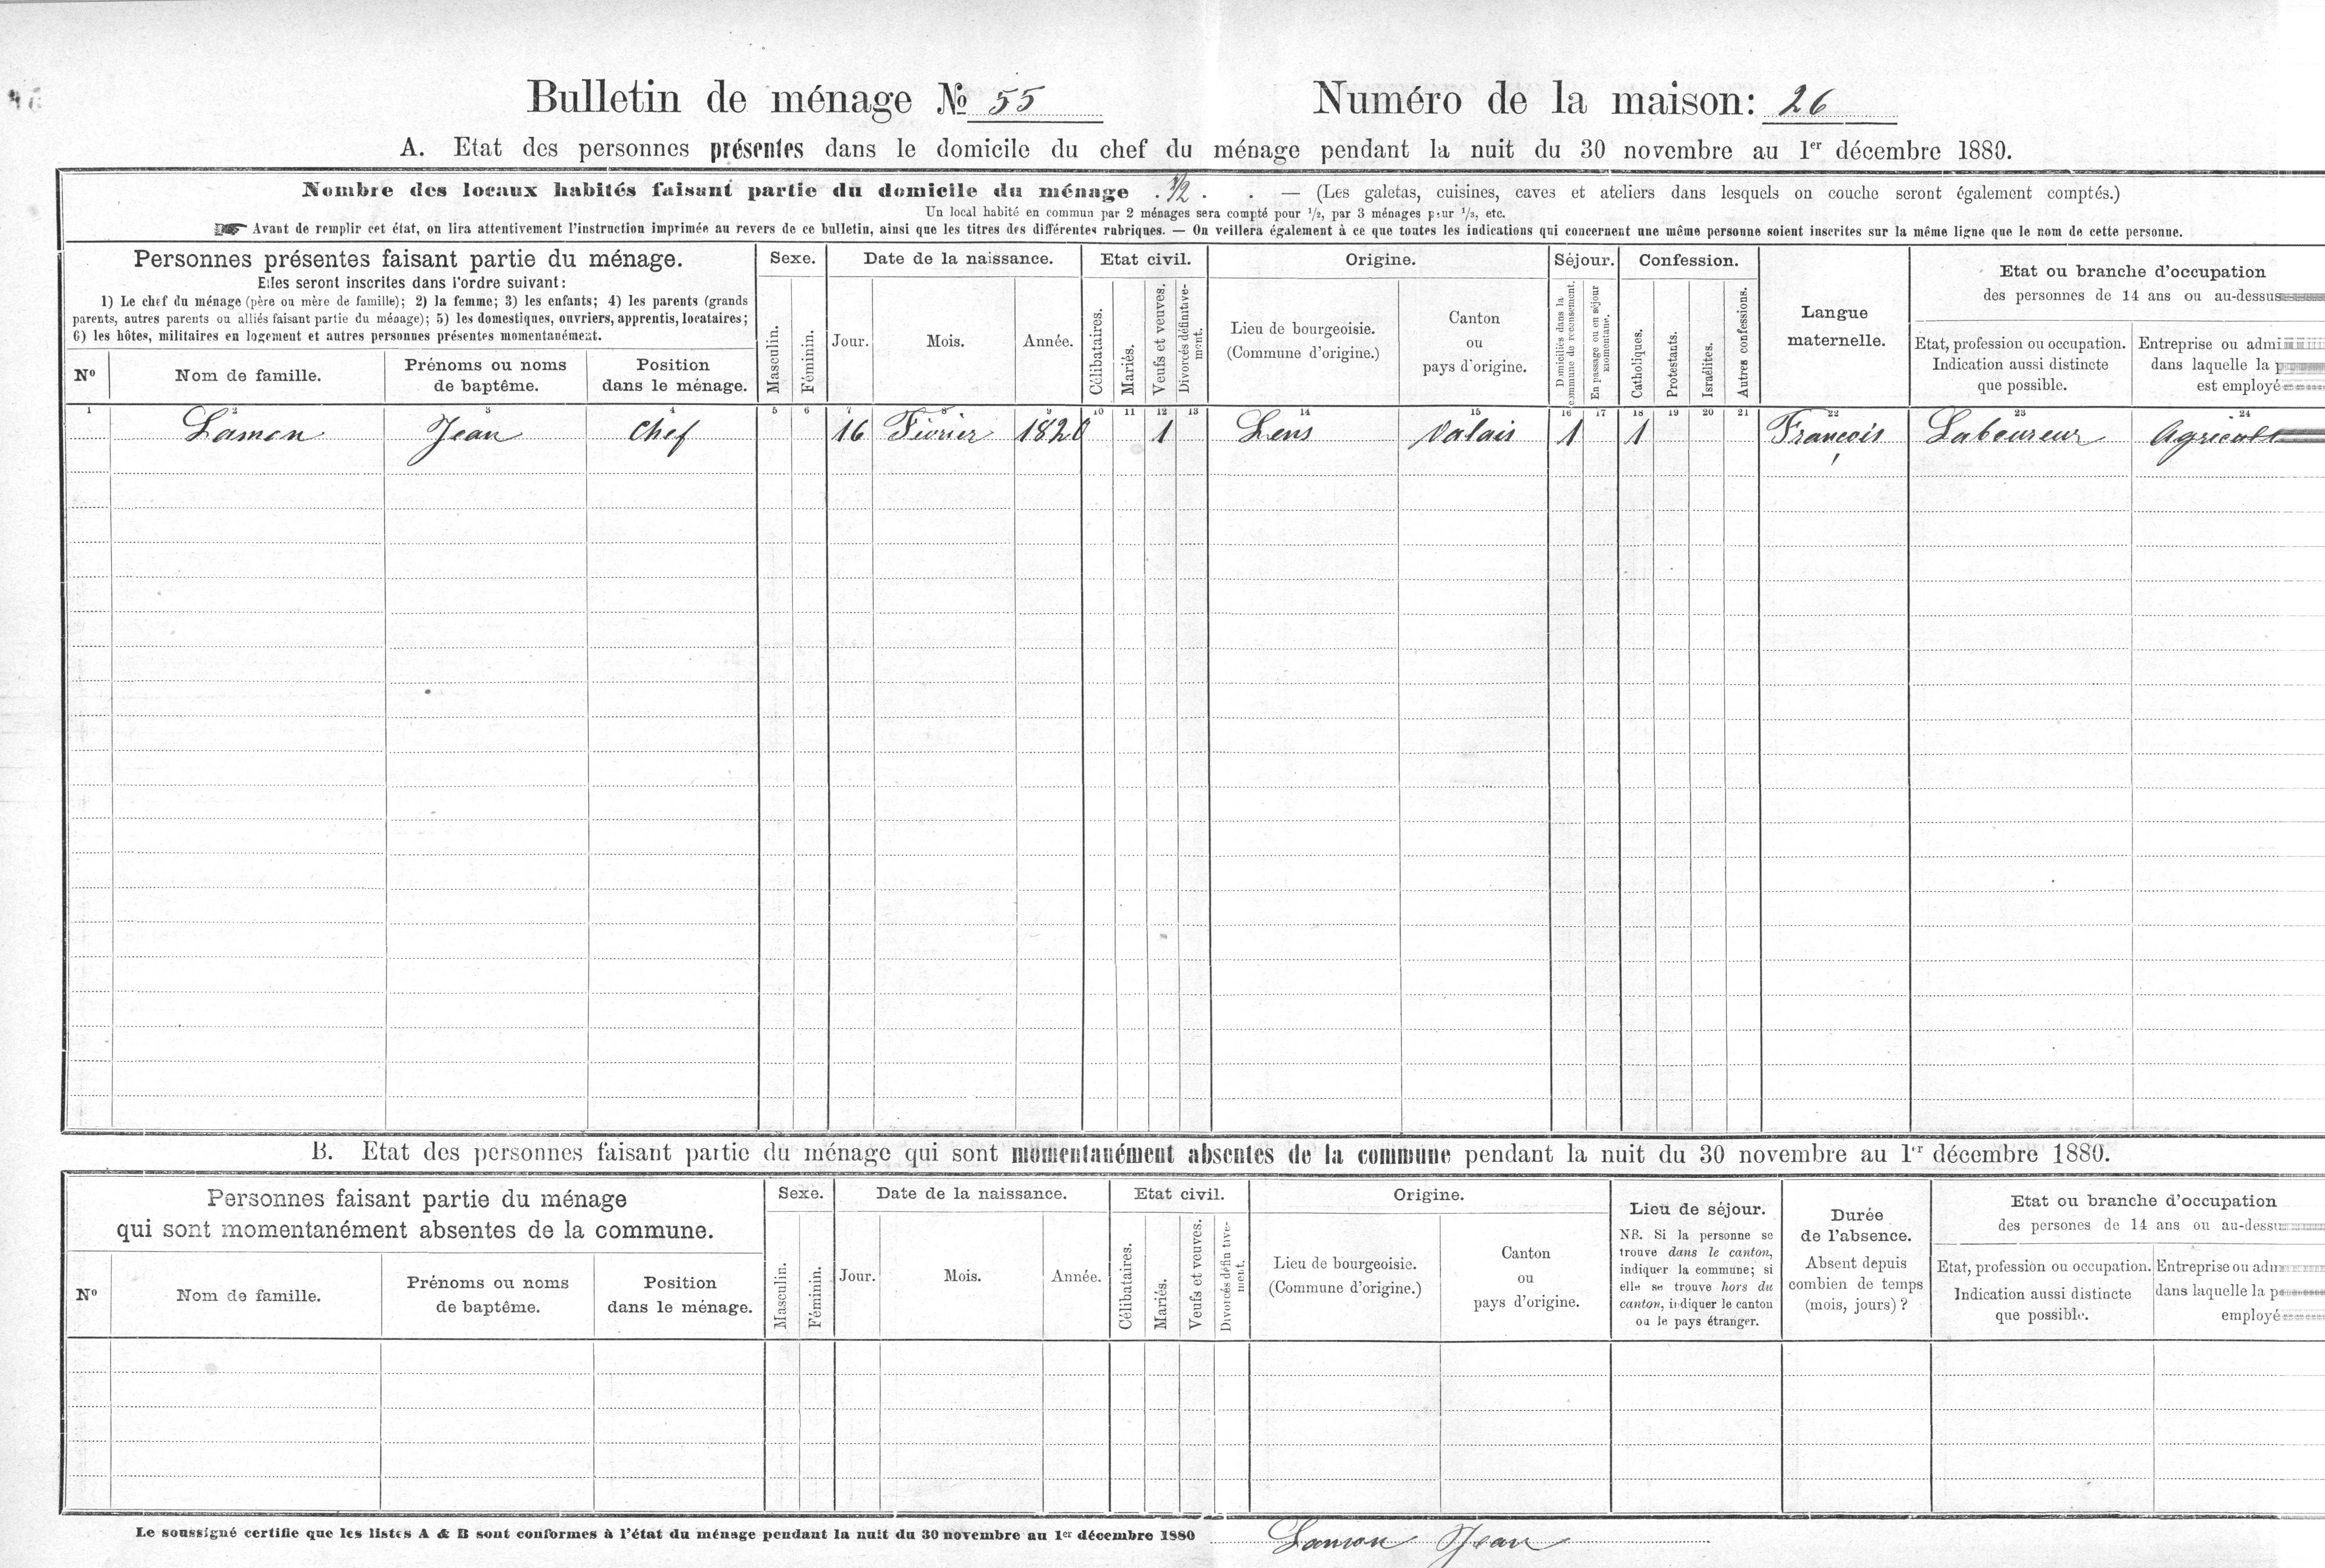 Bulletin de ménage № 55 Numéro de la maison: 26
A. Etat des personnes présentes dans le domicile du chef du ménage pendant la nuit du 30 novembre au 1er décembre 1880.
Nombre des locaux habités faisant partie du domicile du ménage . 1/2 . . — (Les galetas, cuisines, caves et ateliers dans lesquels on couche seront également comptés.)
Un local habité en commun par 2 ménages sera compté pour 1/2, par 3 ménages pour 1/3, etc.
☞ Avant de remplir cet état, on lira attentivement l'instruction imprimée au revers de ce bulletin, ainsi que les titres des différentes rubriques. — On veillera également à ce que toutes les indications qui concernent une même personne soient inscrites sur la même ligne que le nom de cette personne.
Personnes présentes faisant partie du ménage.
Elles seront inscrites dans l'ordre suivant:
1) Le chef du ménage (père ou mère de famille); 2) la femme; 3) les enfants; 4) les parents (grands
parents, autres parents ou alliés faisant partie du ménage); 5) les domestiques, ouvriers, apprentis, locataires;
6) les hôtes, militaires en logement et autres personnes présentes momentanément.
Nº
Nom de famille.
Prénoms ou noms
de baptême.
Position
dans le ménage.
Sexe.
Masculin.
Féminin.
Date de la naissance.
Jour.
Mois.
Année.
Etat civil.
Célibataires.
Mariés.
Veufs et veuves.
Divorcés définitive-
ment.
Origine.
Lieu de bourgeoisie.
(Commune d'origine.)
Canton
ou
pays d'origine.
Séjour.
Domiciliés dans la
commune de recensement.
En passage ou en séjour
momentané.
Confession.
Catholiques.
Protestants.
Israélites.
Autres confessions.
Langue
maternelle.
Etat ou branche d'occupation
des personnes de 14 ans ou au-dessus
Etat, profession ou occupation.
Indication aussi distincte
que possible.
Entreprise ou admi
dans laquelle la p
est employé
1 2 3 4 5 6 7 8 9 10 11 12 13 14 15 16 17 18 19 20 21 22 23 24
Lamon Jean Chef 16 Février 1820 1 Lens Valais 1 1 François Laboureur Agricult
B. Etat des personnes faisant partie du ménage qui sont momentanément absentes de la commune pendant la nuit du 30 novembre au 1er décembre 1880.
Personnes faisant partie du ménage
qui sont momentanément absentes de la commune.
Nº
Nom de famille.
Prénoms ou noms
de baptême.
Position
dans le ménage.
Sexe.
Masculin.
Féminin.
Date de la naissance.
Jour.
Mois.
Année.
Etat civil.
Célibataires.
Mariés.
Veufs et veuves.
Divorcés définitive-
ment.
Origine.
Lieu de bourgeoisie.
(Commune d'origine.)
Canton
ou
pays d'origine.
Lieu de séjour.
NB. Si la personne se
trouve dans le canton,
indiquer la commune; si
elle se trouve hors du
canton, indiquer le canton
ou le pays étranger.
Durée
de l'absence.
Absent depuis
combien de temps
(mois, jours)?
Etat ou branche d'occupation
des persones de 14 ans ou au-dessu
Etat, profession ou occupation.
Indication aussi distincte
que possible.
Entreprise ou adm
dans laquelle la p
employé
Le soussigné certifie que les listes A & B sont conformes à l'état du ménage pendant la nuit du 30 novembre au 1er décembre 1880 Lamon Jean